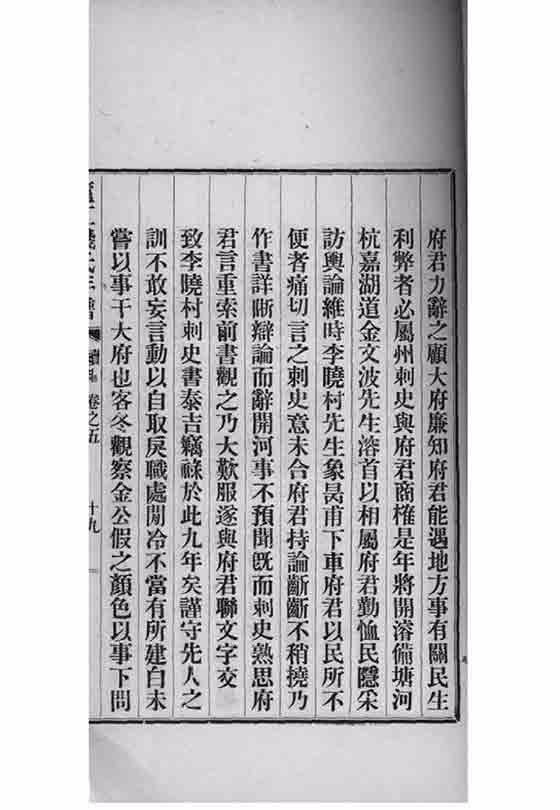 府君力辭之顧大府廉知府君能遇地方事有關民生
利弊者必屬州刺史與府君商榷是年將開濬備塘河
杭嘉湖道金文波先生溶首以相屬府君勤恤民隱采
訪輿論維時李曉村先生象昺甫下車府君以民所不
便者痛切言之刺史意未合府君持論齗齗不稍撓乃
作書詳晰辯論而辭開河事不預聞旣而刺史熟思府
君言重索前書觀之乃大歎服遂與府君聯文字交
致李曉村刺史書泰吉竊祿於此九年矣謹守先人之
訓不敢妄言動以自取戾職處閒冷不當有所建白未
嘗以事干大府也客冬觀察金公假之顏色以事下問
錢氏 卷之五 十九